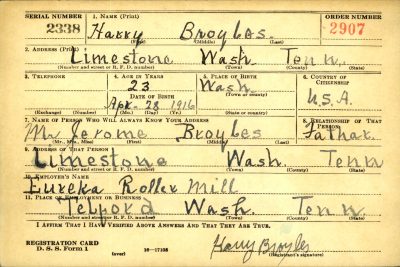 SERIAL NUMBER 1. NAME (Print) ORDER NUMBER
2338 Harry Broyles. 2907
(First) (Middle) (Last)
2. ADDRESS (Print)
Limestone Wash. Tenn.
(Number and street or R. F. D. number) (Town) (County) (State)
3. TELEPHONE 4. AGE IN YEARS 5. PLACE OF BIRTH 6. COUNTRY OF CITIZENSHIP
23 Wash.
DATE OF BIRTH (Town or county)
Apr. 28 1916 Tenn U.S.A.
(Exchange) (Number) (Mo.) (Day) (Yr.) (State or country)
7. NAME OF PERSON WHO WILL ALWAYS KNOW YOUR ADDRESS 8. RELATIONSHIP OF THAT PERSON
Mr. Jerome Broyles Father
(Mr., Mrs., Miss) (First) (Middle) (Last)
9. ADDRESS OF THAT PERSON
Limestone Wash. Tenn
(Number and street or R. F. D. number) (Town) (County) (State)
10. EMPLOYER'S NAME
Eureka Roller Mill
11. PLACE OF EMPLOYMENT OR BUSINESS
Telford Wash. Tenn.
(Number and street or R. F. D. number) (Town) (County) (State)
I AFFIRM THAT I HAVE VERIFIED ABOVE ANSWERS AND THAT THEY ARE TRUE.
REGISTRATION CARD
D. S. S. Form 1 16—17105 Harry Broyles
(over) (Registrant's signature)